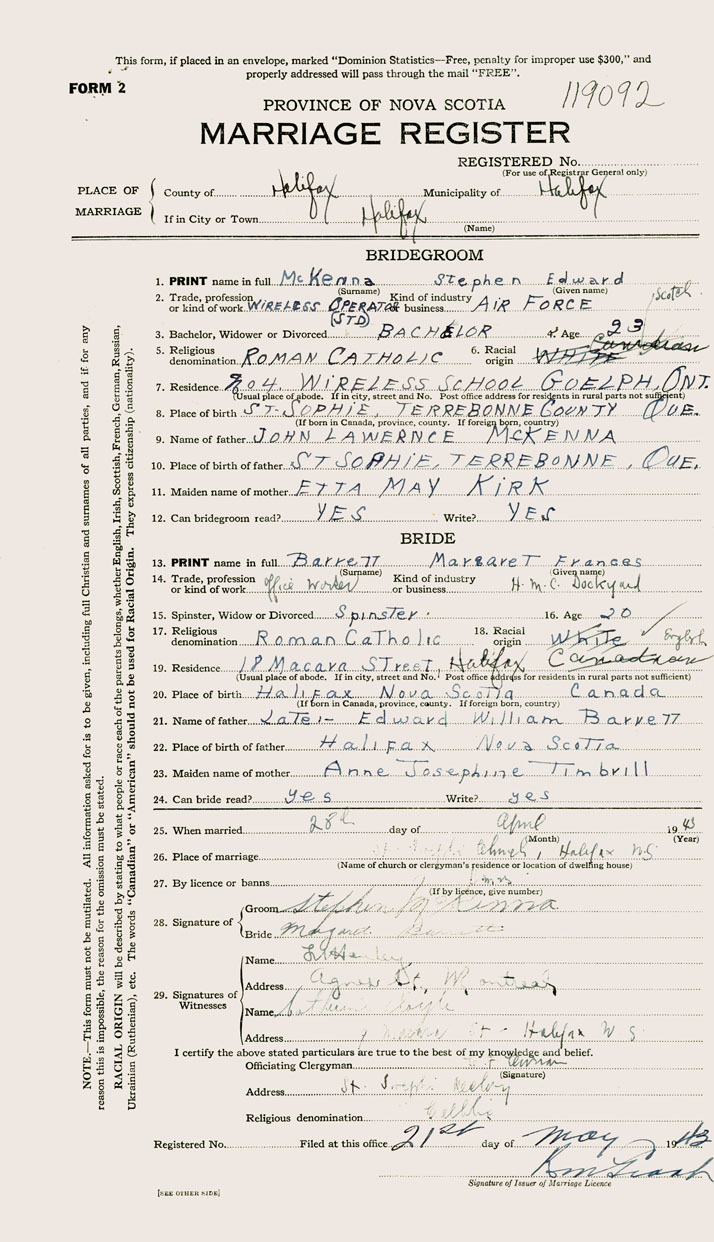 This form, if placed in an envelope, marked "Dominion Statistics—Free, penalty for improper use $300," and
properly addressed will pass through the mail "FREE".
FORM 2
119092
PROVINCE OF NOVA SCOTIA
MARRIAGE REGISTER
REGISTERED No.
(For use of Registrar General only)
PLACE OF MARRIAGE
County of Halifax Municipality of Halifax
If in City or Town Halifax
(Name)
BRIDEGROOM
1. PRINT name in full McKenna Stephen Edward
(Surname) (Given name)
Scotch
2. Trade, profession or kind of work WIRELESS OPERATOR (STD) Kind of industry or business AIR FORCE
3. Bachelor, Widower or Divorced BACHELOR 4. Age 23
Canadian
5. Religious denomination ROMAN CATHOLIC 6. Racial origin WHITE
7. Residence 304 WIRELESS SCHOOL GUELPH, ONT.
(Usual place of abode. If in city, street and No. Post office address for residents in rural parts not sufficient)
8. Place of birth ST-SOPHIE, TERREBONNE COUNTY QUE.
(If born in Canada, province, county. If foreign born, country)
9. Name of father JOHN LAWERNCE McKENNA
10. Place of birth of father ST SOPHIE, TERREBONNE, QUE.
11. Maiden name of mother ETTA MAY KIRK
12. Can bridegroom read? YES Write? YES
BRIDE
13. PRINT name in full Barrett Margaret Frances
(Surname) (Given name)
14. Trade, profession or kind of work Office Worker Kind of industry or business H.M.C. Dockyard
15. Spinster, Widow or Divorced Spinster. 16. Age 20
17. Religious denomination Roman Catholic 18. Racial origin White English
19. Residence 18 Macara Street, Halifax Canadian
(Usual place of abode. If in city, street and No. Post office address for residents in rural parts not sufficient)
20. Place of birth Halifax Nova Scotia Canada
(If born in Canada, province, county. If foreign born, country)
21. Name of father Late:- Edward William Barrett
22. Place of birth of father Halifax Nova Scotia
23. Maiden name of mother Anne Josephine Timbrill
24. Can bride read? yes Write? yes
25. When married 28th day of April 1943
(Month) (Year)
26. Place of marriage St Joseph's Church, Halifax N.S.
(Name of church or clergyman's residence or location of dwelling house)
27. By licence or banns
(If by licence, give number)
28. Signature of
Groom Stephen McKenna
Bride Margaret Barrett
29. Signatures of Witnesses
Name
Address Agnes St, Montreal
Name
Address St - Halifax N S
I certify the above stated particulars are true to the best of my knowledge and belief.
Officiating Clergyman
(Signature)
Address St. Joseph's
Religious denomination
Registered No. Filed at this office 21st day of May 1943
Signature of Issuer of Marriage Licence
[SEE OTHER SIDE]
NOTE.—This form must not be mutilated. All information asked for is to be given, including full Christian and surnames of all parties, and if for any
reason this is impossible, the reason for the omission must be stated.
RACIAL ORIGIN will be described by stating to what people or race each of the parents belongs, whether English, Irish, Scottish, French, German, Russian,
Ukrainian (Ruthenian), etc. The words "Canadian" or "American" should not be used for Racial Origin. They express citizenship (nationality).